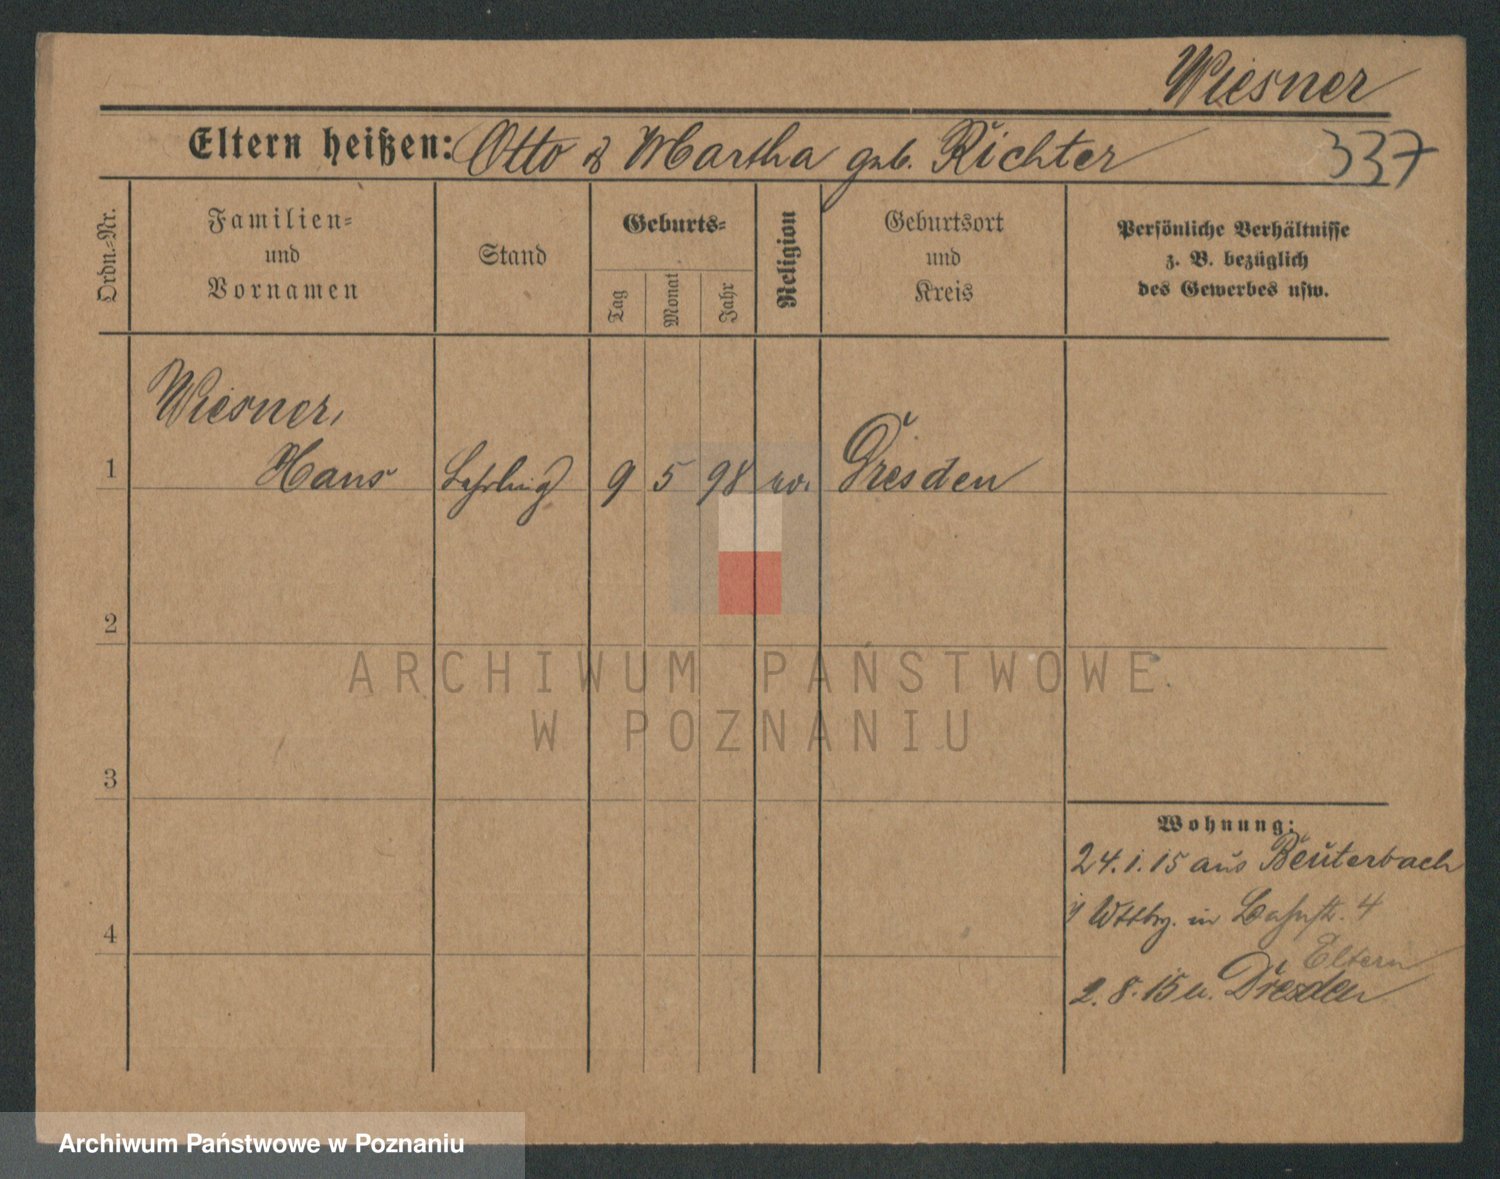 Wiesner
Eltern heißen: Otto & Martha geb. Richter
337
Ordn.=Nr.
Familien=
und
Vornamen
Stand
Geburts=
Tag
Monat
Jahr
Religion
Geburtsort
und
Kreis
Persönliche Verhältnisse
z. B. bezüglich
des Gewerbes usw.
1
Wiesner,
Hans
Lehrling
9
5
98
ev.
Dresden
2
3
4
Wohnung:
24.1.15 aus Beuterbach
in Bahnstr. 4
Eltern
2.8.15 n. Dresden
ARCHIWUM PAŃSTWOWE
W POZNANIU
Archiwum Państwowe w Poznaniu